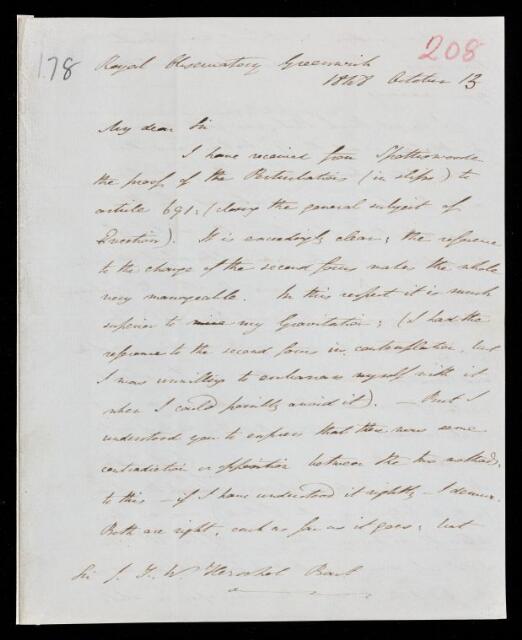 178
208
Royal Observatory Greenwich
1848 October 13
My dear Sir
I have received from Spottiswoode
the proof of the Perturbations (in slips) to
article 691, (closing the general subject of
Evection). It is exceedingly clear; the reference
to the change of the second focus makes the whole
very manageable. In this respect it is much
superior to mine my Gravitation; (I had the
reference to the second focus in contemplation, but
I was unwilling to embarrass myself with it
when I could possibly avoid it). — But I
understood you to express that there was some
contradiction or opposition between the two methods:
to this — if I have understood it rightly — I demur.
Both are right, each as far as it goes; but
Sir J. F. W. Herschel Bart